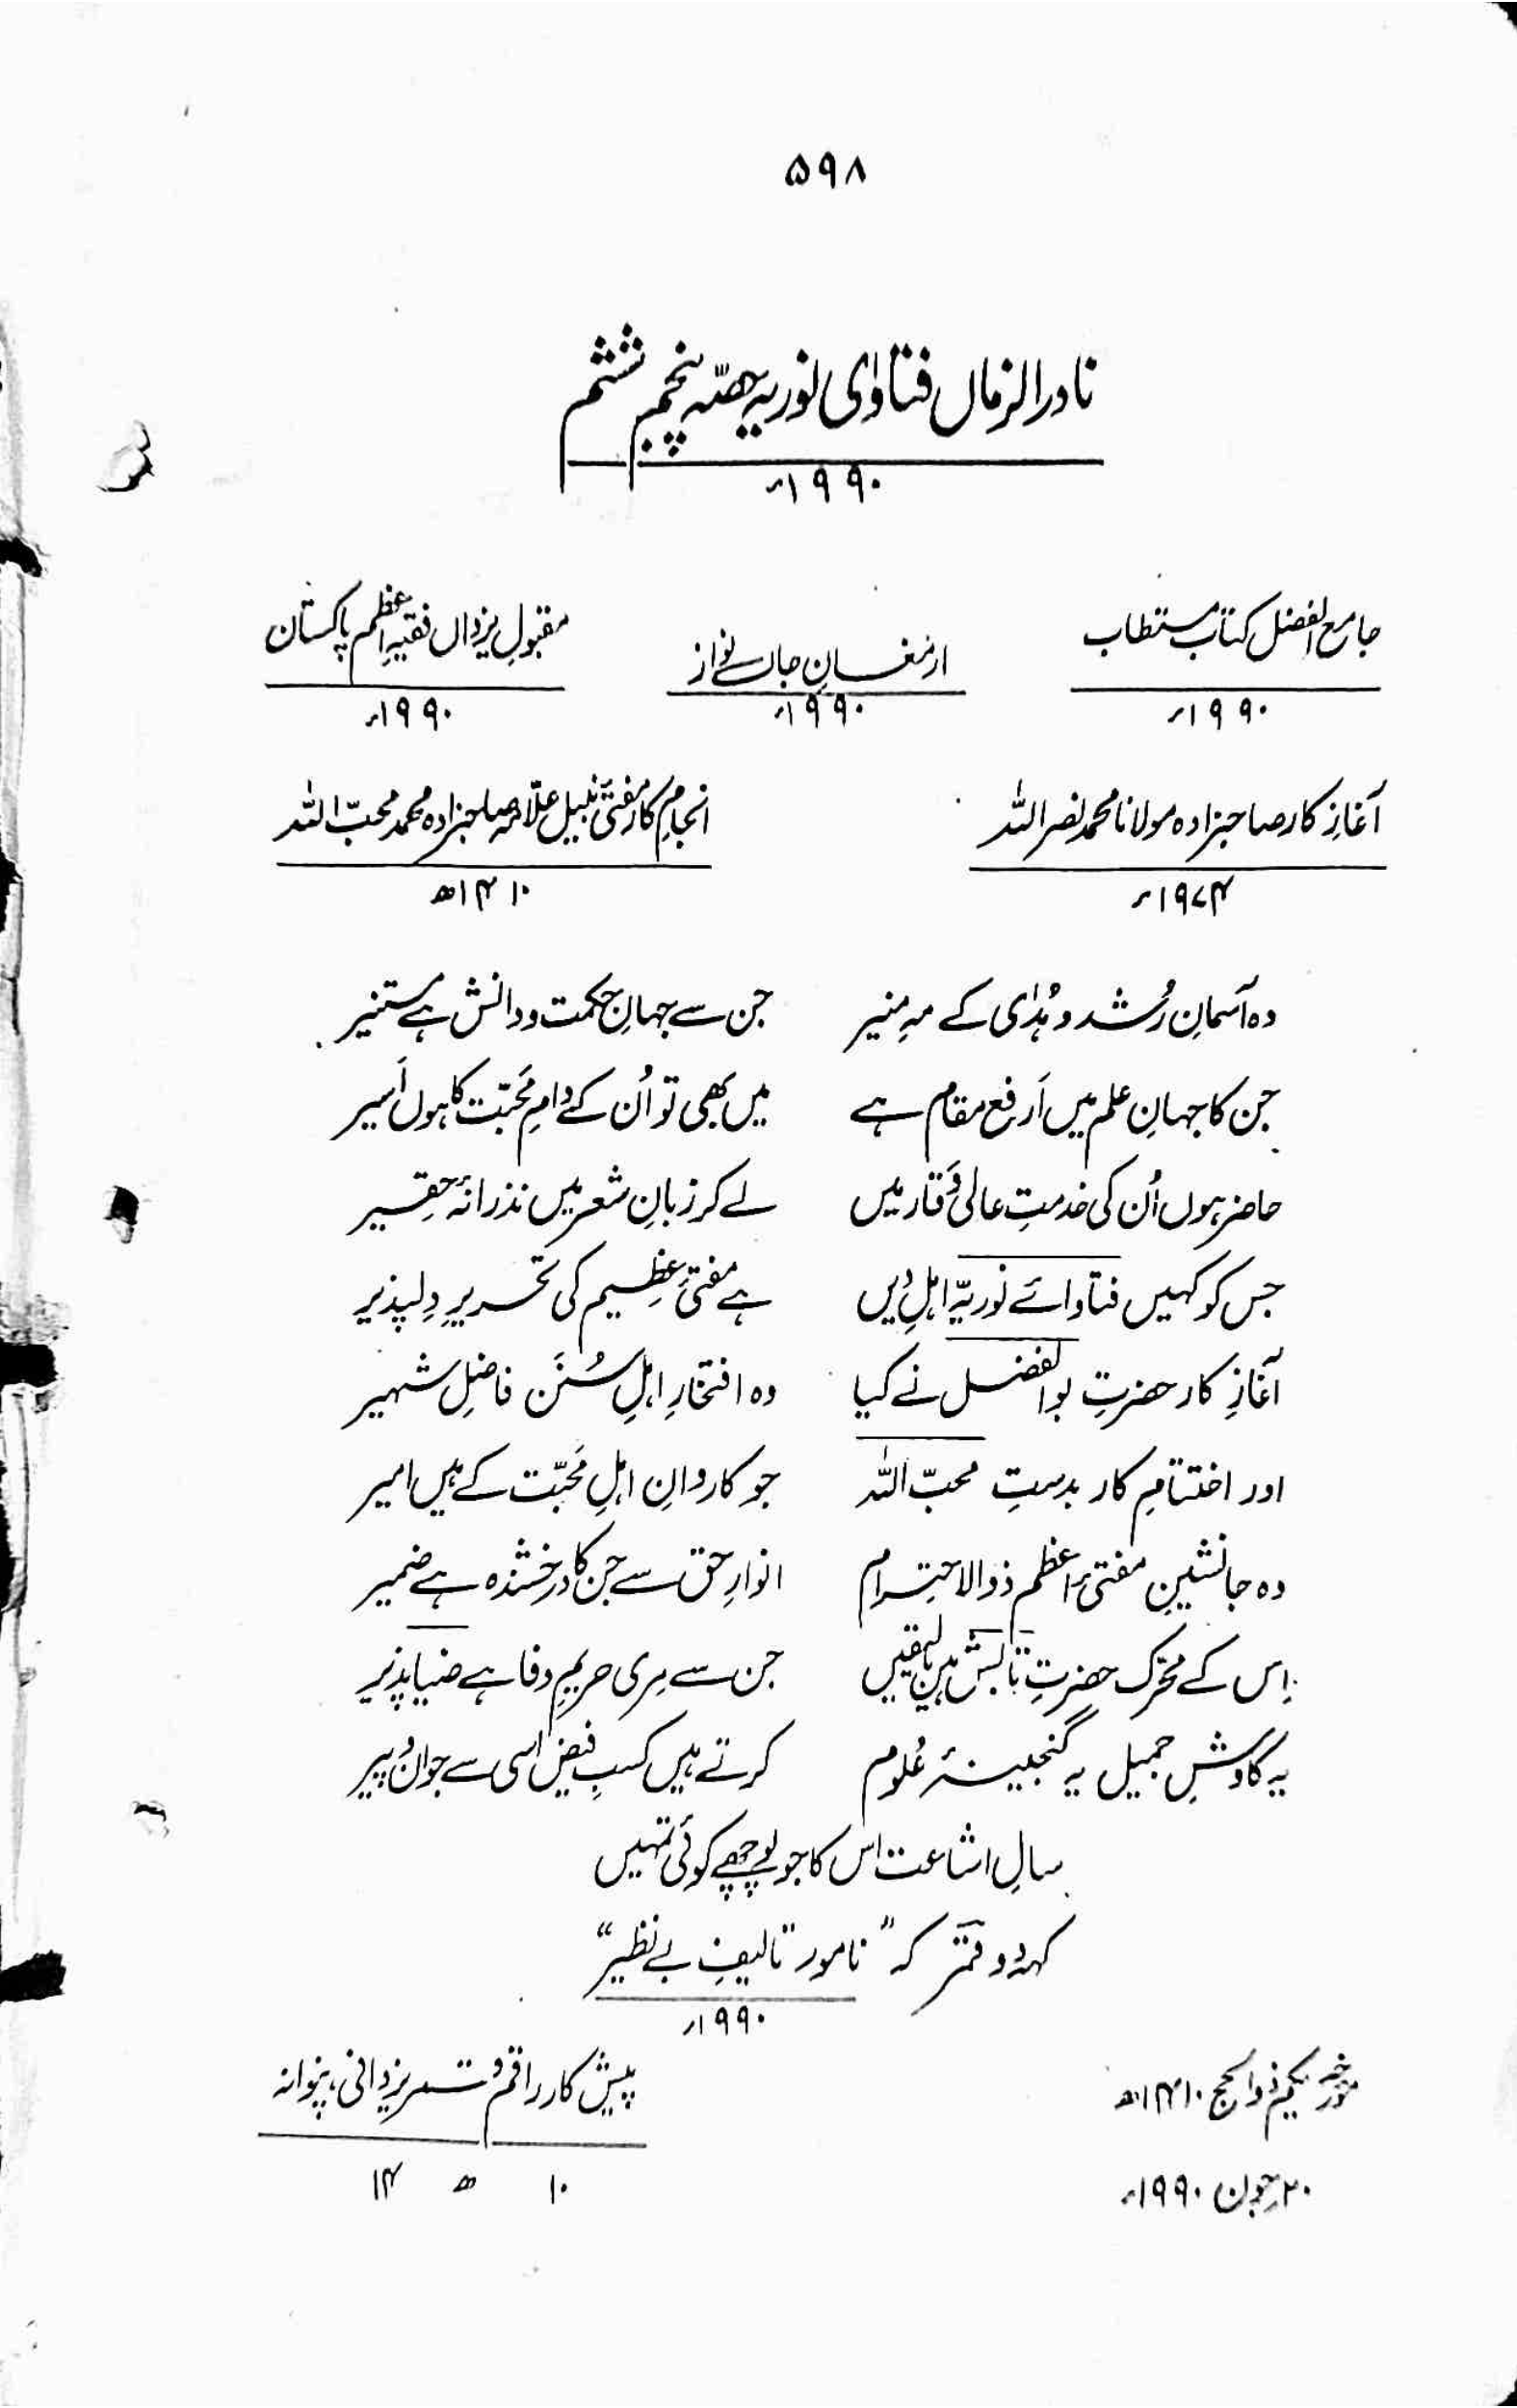 ۵۹۸
نادر الزماں فتاوٰی نوریہ حصّہ پنجم ششم
۱۹۹۰ء
جامع الفضل کتاب مستطاب ارمغانِ جاں نواز مقبولِ یزداں فقیہِ اعظم پاکستان
۱۹۹۰ء ۱۹۹۰ء ۱۹۹۰ء
آغازِ کار صاحبزادہ مولانا محمد نصر اللہ انجامِ کار مفتیٔ نبیل علّامہ صاحبزادہ محمد محبّ اللہ
۱۹۷۴ء ۱۴۱۰ھ
وہ آسمانِ رُشد و ہُدٰی کے مہِ منیر جن سے جہانِ حکمت و دانش ہے مستنیر
جن کا جہانِ علم میں اَرفع مقام ہے میں بھی تو اُن کے دامِ مَحبّت کا ہوں اَسیر
حاضر ہوں اُن کی خدمتِ عالی وَقار میں لے کر زبانِ شعر میں نذرانۂ حقِیر
جس کو کہیں فتاوائے نوریّہ اہلِ دِیں ہے مفتیٔ عظِیم کی تحریرِ دِلپذیر
آغازِ کار حضرتِ بوالفضل نے کیا وہ افتخارِ اہلِ سُنَن فاضلِ شہیر
اور اختتامِ کار بدستِ محبّ اللہ جو کاروانِ اہلِ مَحبّت کے ہیں امیر
وہ جانشینِ مفتیٔ اعظم ذوالاحترام انوارِ حق سے جن کا درخشندہ ہے ضمیر
اِس کے محرّک حضرتِ تابشؔ ہیں بالیقیں جن سے مِری حریمِ وفا ہے ضیا پذیر
یہ کاوشِ جمیل یہ گنجینۂ عُلوم کرتے ہیں کسبِ فیض اسی سے جوان و پیر
سالِ اشاعت اس کا جو پوچھے کوئی تمہیں
کہدو قمرؔ کہ "نامور تالیفِ بے نظیر"
۱۹۹۰ء
مورخہ یکم ذوالحج ۱۴۱۰ھ پیش کار راقم قمر یزدانی، پنوانہ
۲۰ جون ۱۹۹۰ء ۱۰ ھ ۱۴